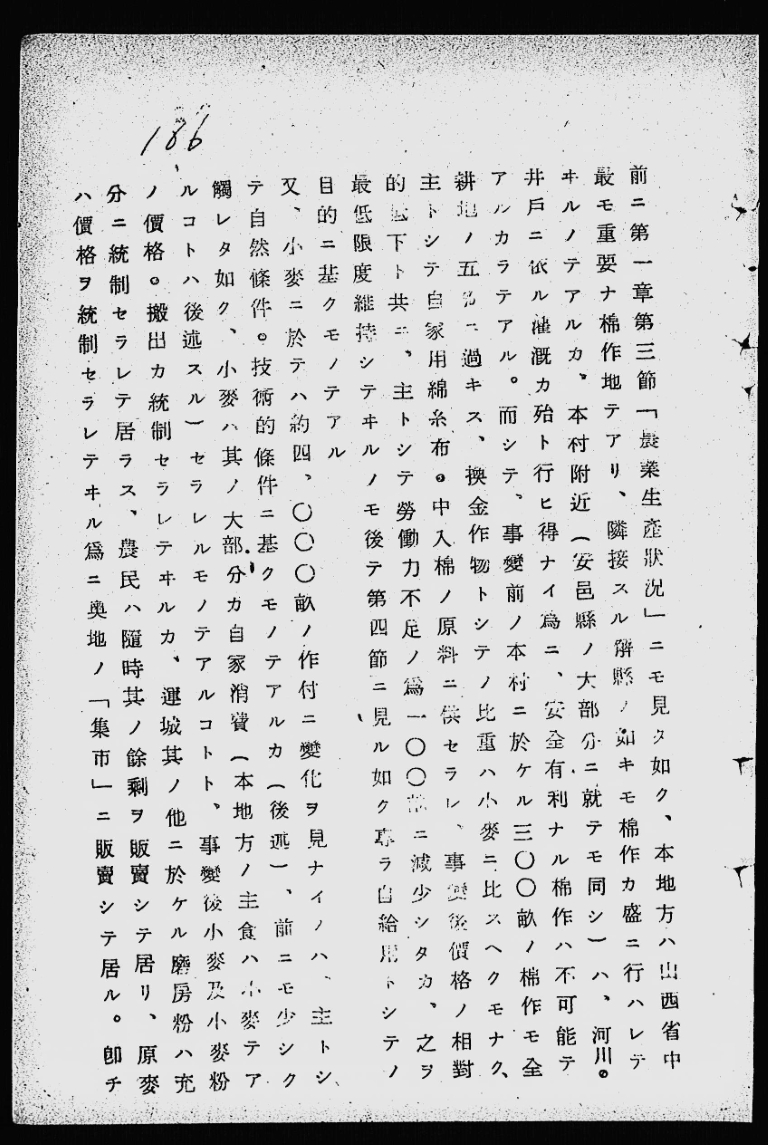 186
前ニ第一章第三節「農業生產狀況」ニモ見タ如ク、本地方ハ山西省中
最モ重要ナ棉作地テアリ、隣接スル解縣ノ如キモ棉作カ盛ニ行ハレテ
ヰルノテアルカ、本村附近（安邑縣ノ大部分ニ就テモ同シ）ハ、河川。
井戶ニ依ル灌漑カ殆ト行ヒ得ナイ爲ニ、安全有利ナル棉作ハ不可能テ
アルカラテアル。而シテ、事變前ノ本村ニ於ケル三〇〇畝ノ棉作モ全
耕地ノ五%ニ過キス、換金作物トシテノ比重ハ小麥ニ比スヘクモナク、
主トシテ自家用綿糸布。中入棉ノ原料ニ供セラレ、事變後價格ノ相對
的低下ト共ニ、主トシテ勞働力不足ノ爲一〇〇畝ニ減少シタカ、之ヲ
最低限度維持シテヰルノモ後テ第四節ニ見ル如ク專ラ自給用トシテノ
目的ニ基クモノテアル
又、小麥ニ於テハ約四、〇〇〇畝ノ作付ニ變化ヲ見ナイノハ、主トシ
テ自然條件。技術的條件ニ基クモノテアルカ（後述）、前ニモ少シク
觸レタ如ク、小麥ハ其ノ大部分カ自家消費（本地方ノ主食ハ小麥テア
ルコトハ後述スル）セラレルモノテアルコトト、事變後小麥及小麥粉
ノ價格。搬出カ統制セラレテヰルカ、運城其ノ他ニ於ケル磨房粉ハ充
分ニ統制セラレテ居ラス、農民ハ隨時其ノ餘剩ヲ販賣シテ居リ、原麥
ハ價格ヲ統制セラレテヰル爲ニ奧地ノ「集市」ニ販賣シテ居ル。卽チ